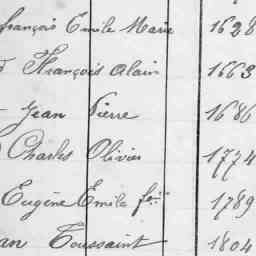 françois Emile Marie 1628
François Alain 1663
Jean Pierre 1686
Charles Olivier 1774
Eugène Emile fois 1789
an Toussaint 1804